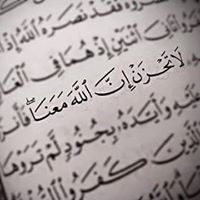 فَقَدْ نَصَرَهُ اللَّهُ إِذْ
ثَانِيَ اثْنَيْنِ إِذْ هُمَا فِي الْغَا
لَا تَحْزَنْ إِنَّ اللَّهَ مَعَنَا ۖ فَأَنزَ
عَلَيْهِ وَأَيَّدَهُ بِجُنُودٍ لَّمْ تَرَوْهَا
الَّذِينَ كَفَرُوا